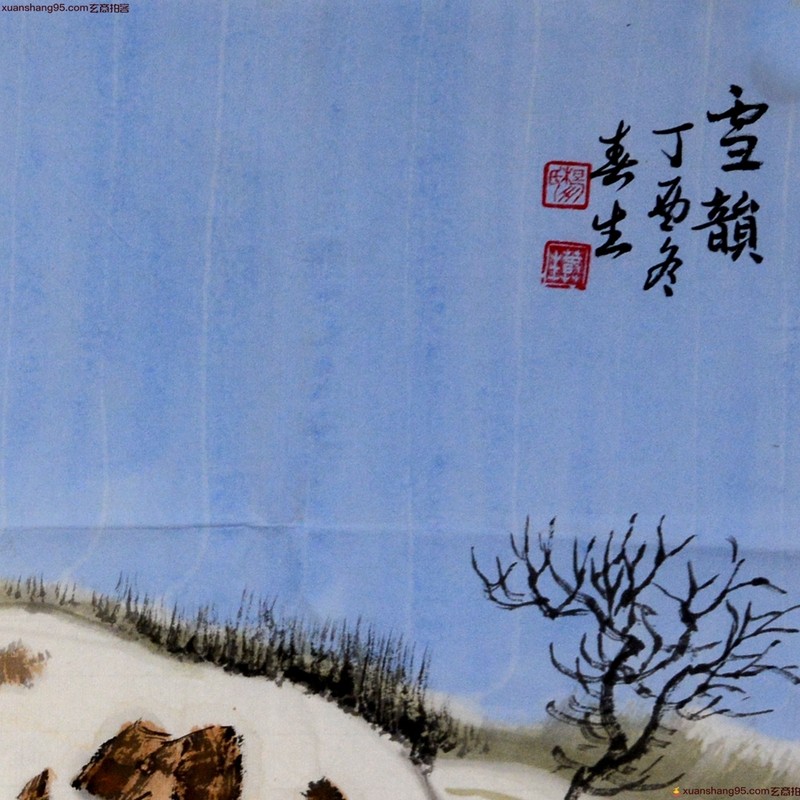 xuanshang95.com玄商拍客
雪韻
丁酉冬
春生
楊
xuanshang95.com玄商拍客